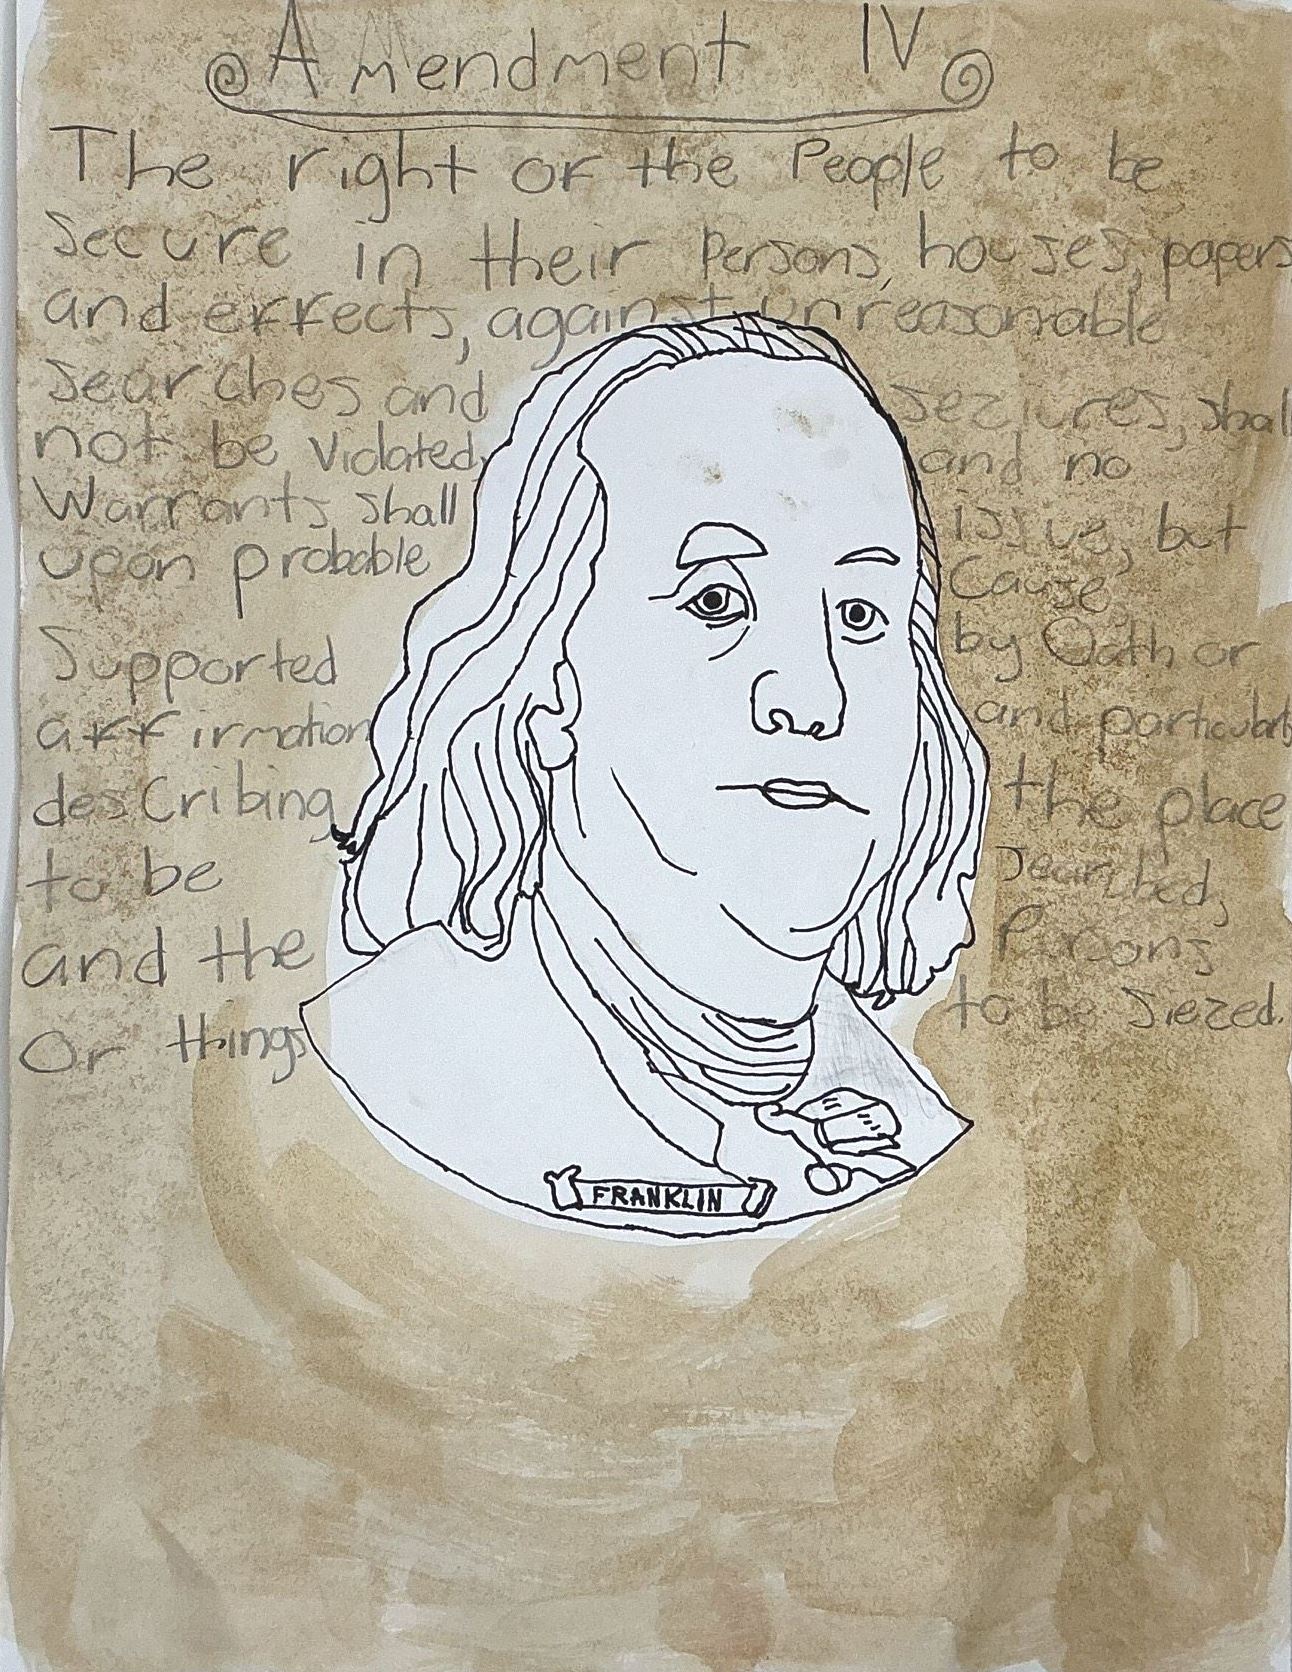 Amendment IV
The right of the People to be
secure in their Persons, houses, papers
and effects, against unreasonable
searches and seziures, shall
not be violated, and no
Warrants shall issue, but
upon probable Cause,
Supported by Oath or
affirmation and particularly
describing the place
to be searched,
and the Persons
Or things to be siezed.
FRANKLIN